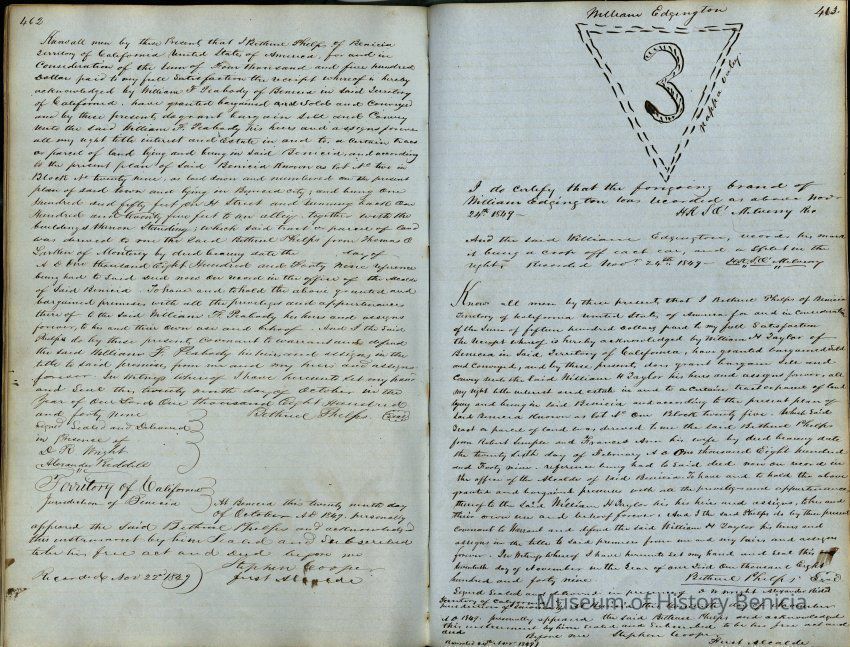 462
Know all men by these Present, that I Bethuel Phelps of Benicia
Territory of California United State of America for and in
Consideration of the sum of Four thousand and five hundred
Dollar paid to my full Satisfaction the receipt whereof is hereby
acknowledged by William F Peabody of Benicia in said Territory
of California. have granted bargained and Sold and Conveyed
and by these presents do grant bargain Sell and Convey
unto the said William F. Peabody his heirs and assigns forever
all my right title interest and Estate in and to, a certain trac
or parcel of land lying and being in said Benicia, and according
to the present plan of said Benicia Known as lot No two in
Block No twenty nine, as laid down and numbered on the present
plan of said town and lying in Benicia city, and being One
Hundred and fifty feet on H Street and running back One
Hundred and twenty five feet to an alley. together with the
buildings thereon Standing, which said tract or parcel of land
was deeded to me the said Bethuel Phelps from Thomas O
Larkin of Monterey by deed bearing date the day of
A D One thousand Eight Hundred and Forty Nine reference
being had to said deed now on record in the office of the Alcalde
of Said Benicia. To have and to hold the above granted and
bargained premises, with all the privileges and appurtenances
thereof to the said William F. Peabody his heirs and assigns
forever, to his and their own use and behoof. And I the Said
Phelps do by these present, Covenant to warrant and defend
the said William F. Peabody his heirs and assigns in the
title to said premises, from me and my heirs and assigns
forever. In Witness whereof I have hereunto set my hand
and Seal this twenty ninth day of October in the
Year of Our Lord One thousand Eight Hundred
and forty nine Bethuel Phelps Seal
Signed Sealed and Delivered
in Presence of
D R Wright
Alexander Riddell
Territory of California
Jurisdiction of Benicia
At Benicia this twenty ninth day
of October A D 1849. personally
appeared the said Bethuel Phelps and acknowledged
this instrument by him Sealed and Subscribed
to be his free act and Deed before me
Stephen Cooper
first Alcalde
Recorded Nov 22nd 1849
463
William Edgington
3
Nappa Valey
I do certify that the foregoing brand of
William Edgington was recorded as above Nov
24th 1849 -
And the said William Edgington, records his mark
it being a crop off each ear, and a split in the
right. Recorded Novr 24th 1849 -
Know all men by these present, that I Bethuel Phelps of Benicia
Territory of California United State, of America for and in Consideration
of the Sum of fifteen hundred Dollars paid to my full Satisfaction
the receipt whereof is hereby acknowledged by William H Taylor of
Benicia in Said Territory of California, have granted bargained Sold
and Conveyed, and by these present, does grant bargain Sell and
Convey unto the Said William H Taylor his heirs and assigns forever, all
my right title interest and estate in and to a certain tract or parcel of land
lying and being in said Benicia and according to the present plan of
Said Benicia Known as lot No One Block twenty five. Which said
tract or parcel of land was deeded to me the said Bethuel Phelps
from Robert Semple and Frances Ann his wife by deed bearing date
the twenty sixth day of February A D One thousand Eight hundred
and forty nine. reference being had to said deed now on record in
the office of the Alcalde of said Benicia To have and to hold the above
granted and bargained premises with all the privileges and appurtenances
thereof to the said William H Taylor his heirs and assigns, to his and
their own use and behoof forever. And I the said Phelps do by these present
Covenant to Warrant and defend the said William H Taylor his heirs and
assigns in the title to said premises from me and my heirs and assigns
forever. In Witness whereof I have hereunto set my hand and seal this
twentieth day of November in the Year of our Lord One thousand Eight
hundred and forty nine. Bethuel Phelps Seal
Signed Sealed and delivered in presence of D R Wright Alexander Riddell
Territory of California
A D 1849. personally appeared the said Bethuel Phelps and acknowledged
this instrument by him Sealed and Subscribed to be his free act and
deed Before me Stephen Cooper
First Alcalde
Museum of History Benicia